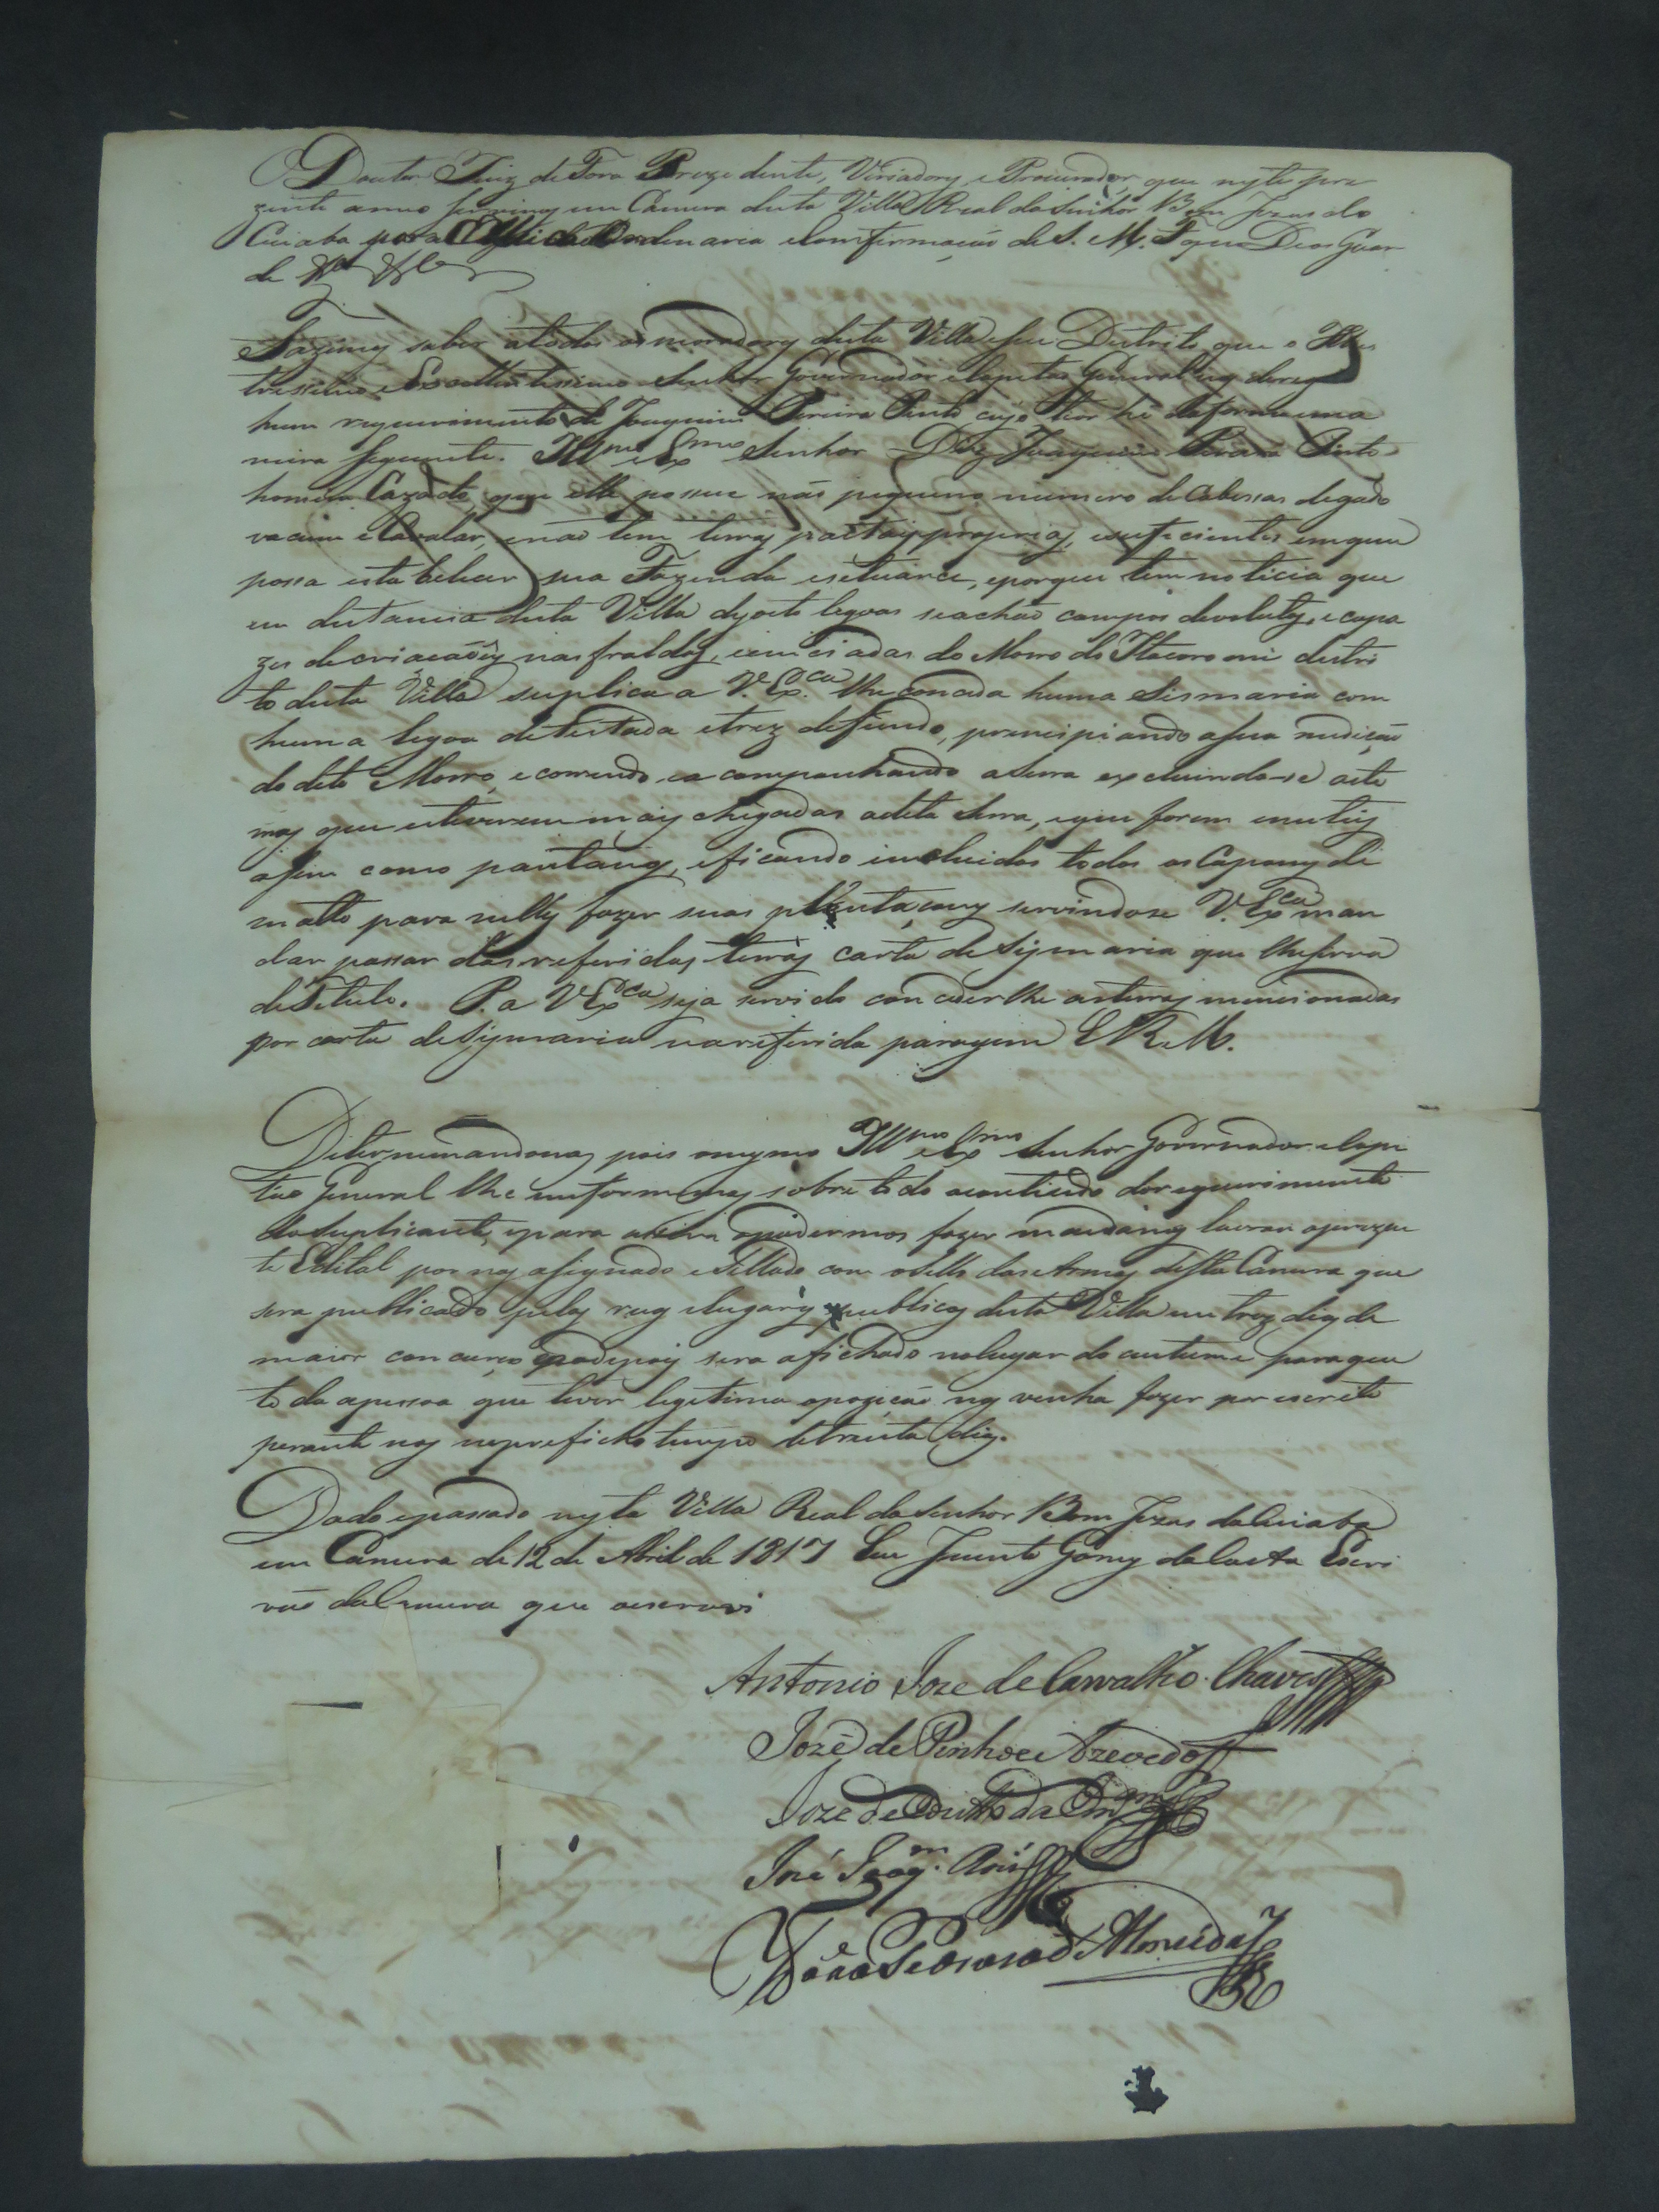 O Doutor Juiz de Fora Prezidente, Veriadorez e Procurador, que neste pre
zente anno servimos em Camera desta Villa Real do Senhor Bom Jezus do
Cuiaba por a Ordenaria e Comfirmação de S. M. F. que Deos Guar
de
Fazemos saber atodos os moradores desta Villa e seu Destrito que o Illus
trissimo e Excellentissimo Senhor Governador e Capitão General nos derego
hum requerimento de Joaquim Pereira Pinto cujo theor hé daforma e ma
neira seguente. Illmo e Exmo Senhor Diz Joaquim Pereira Pinto
homem Cazado, que elle possue não piqueno numero de Cabessas degado
vacum e Cavalar, enaõ tem terras proprias, esuficientes emque
possa estabelecer sua Fazenda esetuarce, eporque tem noticia que
em distancia desta Villa dezoito legoas seachaõ campos devolutos, e capa
zes decriacaões nas fraldas, do Morro do Itacoromi destri
to desta Villa suplica a V. Exca. lhe conceda huma Sismaria com
huma legoa detestada etrez defundo, principiando asua medição
do dito Morro, e correndo e acompanhando aserra excluindo-se aste
rras que estiverem mais chegadas adita serra, eque forem inuteis
asim como pantanos, eficando incluidos todos os Capoens de
matto para nelles fazer suas plantaçoens servindose V. Exca man
dar passar das referidas terras carta desismaria que lhesirva
detitulo. P. a V. Exca seja servido conceder lhe asterras mencionadas
por carta desismaria nareferida paragem E. R. M.
Determinandonos pois omesmo Illmo e Exmo Senhor Governador e Capi
tão General lhe informemos sobre todo ocontiudo dorequerimento
dosuplicante, epara opodermos fazer mandamos lavrar oprezen
te Edital por nos asignado e Sellado com oSello das Armas desta Camara que
sera publicado pelas ruas elugares publicos desta Villa em trez dias de
maior concurço sera afichado nolugar do custume paraque
toda apessoa que tiver legitima opozição nos venha fazer por escrito
perante nos noprefichotempo detrinta dias.
Dado epassado nesta Villa Real do Senhor Bom Jezus do Cuiaba
em Camara de 12 de Abril de 1817 Eu Gomes da Costa Escri
vão da Camara que oescrevi
Antonio Joze de Carvalho Chaves
Jozé de Pinho e Azevedo
Joze de
José Joaqm.
João de Almeida